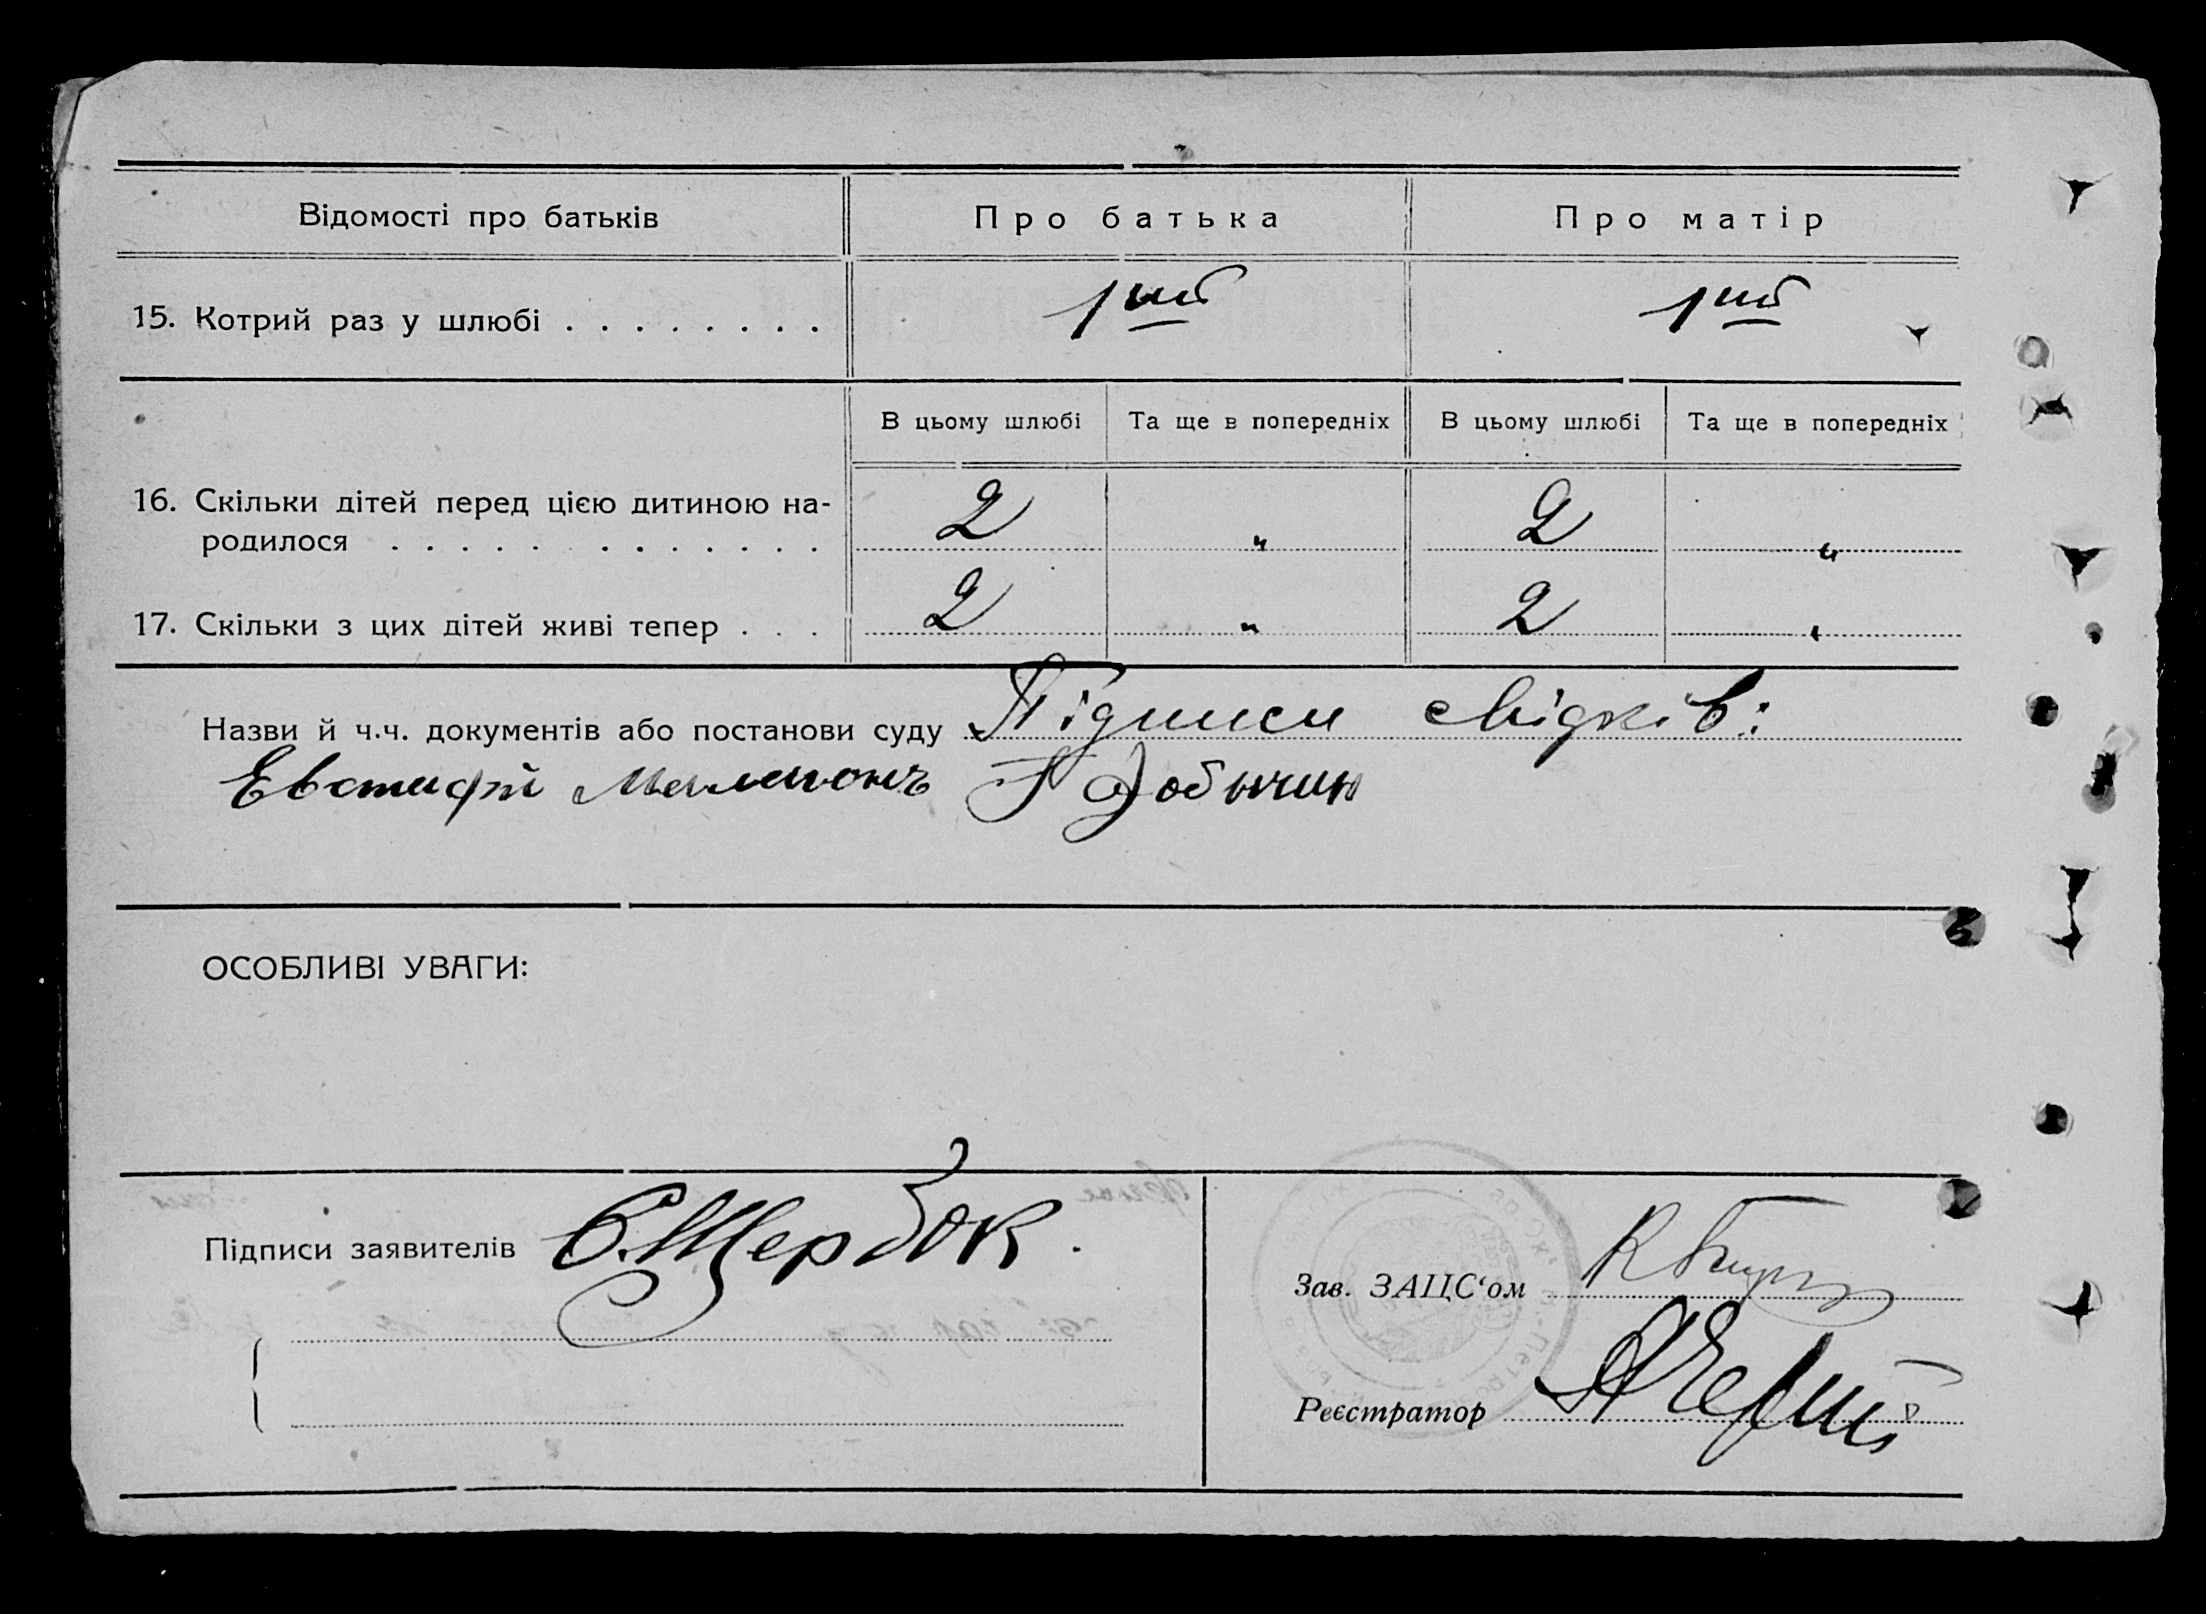 Відомості про батьків Про батька Про матір
15. Котрий раз у шлюбі . . . . . . . . 1ий 1ий
В цьому шлюбі Та ще в попередніх В цьому шлюбі Та ще в попередніх
16. Скільки дітей перед цією дитиною на-
родилося . . . . . . . . . . . . 2 „ 2 „
17. Скільки з цих дітей живі тепер . . . 2 „ 2 „
Назви й ч.ч. документів або постанови суду Підписи свідків:
Евстифй Добычин
ОСОБЛИВІ УВАГИ:
Підписи заявителів С. Щербок.
Зав. ЗАЦС‘ом
Реєстратор